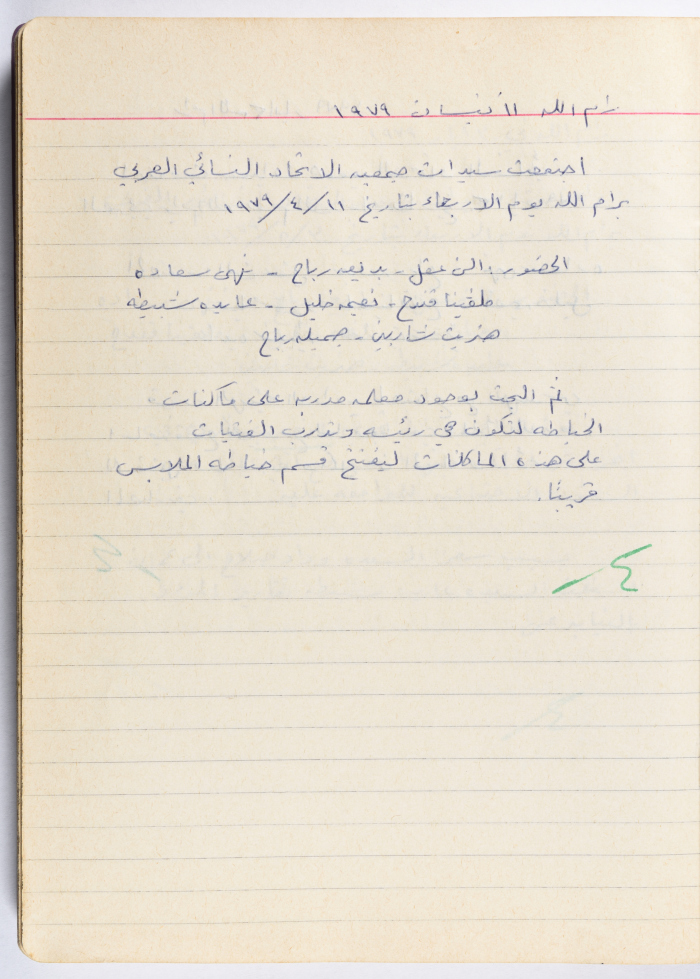 رام الله ١١ نيسان ١٩٧٩
اجتمعت سيدات جمعيه الاتحاد النسائي العربي
برام الله يوم الاربعاء بتاريخ ١١/٤/١٩٧٩
الحضور: السن عقل - بديعه رباح - نهى سعاده
قندح - نعيمه خليل - عايده شطيه
هنريت شاربين - جميله رباح
تم البحث بوجود معلمه مدربه على ماكنات
الخياطه لتكون هي رئيسه وتدرب الفتيات
على هذه الماكنات ليفتتح قسم خياطه الملابس
قريبًا.